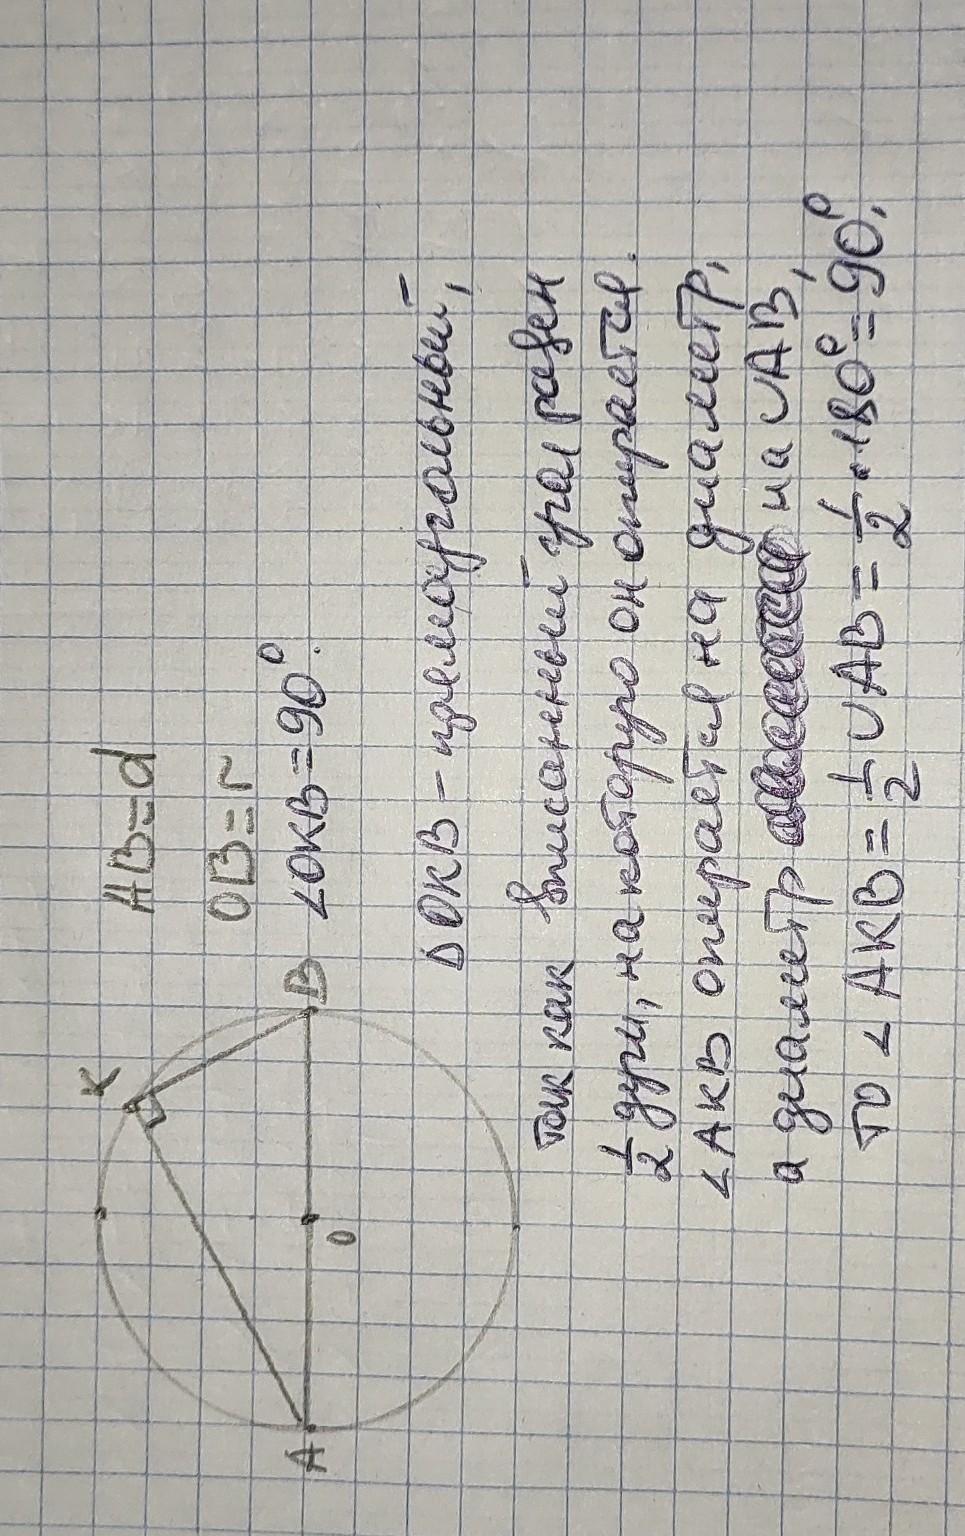 K
A
O
B
AB=d
OB=r
∠OKB=90°.
ΔOKB – прямоугольный,
так как вписанный угол равен
1/2 дуги, на которую он опирается.
∠AKB опирается на диаметр,
а диаметр на ∪AB,
то ∠AKB = 1/2 ∪AB = 1/2 · 180° = 90°.